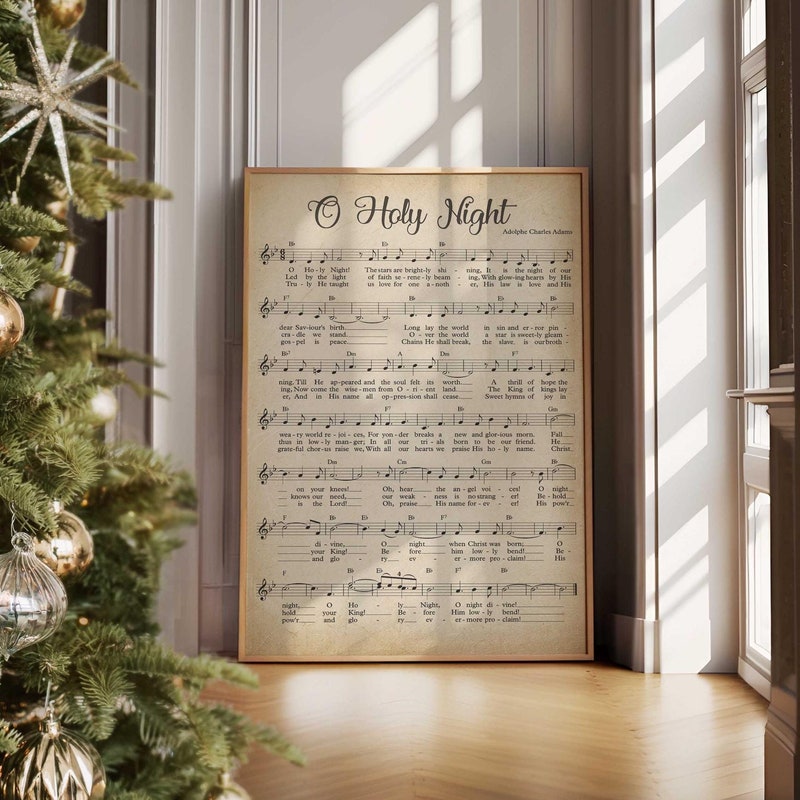 O Holy Night
Adolphe Charles Adams
B♭ E♭ B♭
O Ho - ly Night! The stars are bright - ly shi - ning, It is the night of our
Led by the light of faith se - rene - ly beam - ing, With glow - ing hearts by His
Tru - ly He taught us love for one a - noth - er, His law is love and His
F7 B♭ E♭
dear Sav - iour's birth. Long lay the world in sin and er - ror pin -
cra - dle we stand. O - ver the world a star is sweet - ly gleam -
gos - pel is peace. Chains He shall break, the slave, is our broth -
B♭7 Dm A Dm F7
ning, Till He ap - peared and the soul felt its worth. A thrill of hope the
ing, Now come the wise - men from O - ri - ent land. The King of kings lay
er, And in His name all op - pression shall cease. Sweet hymns of joy in
B♭ F7 B♭ Gm
wea - ry world re - joi - ces, For yon - der breaks a new and glor - ious morn. Fall
thus in low - ly man - ger; In all our tri - als born to be our friend. He
grate - ful chor - us raise we, With all our hearts we praise His ho - ly name. Christ
Dm Cm Gm B♭
on your knees! Oh, hear the an - gel voi - ces! O night
knows our need, our weak - ness is no stran - ger! Be - hold
is the Lord! Oh, praise His name for - ev - er! His pow'r
F B♭ E♭ B♭
di - vine, O night when Christ was born; O
your King! Be fore him low - ly bend! Be -
and glo - ry ev - er - more pro - claim! His
F B♭ E♭ B♭ F B♭
night, O Ho - ly Night, O night di - vine!
hold your King! Be - fore Him low - ly bend!
pow'r and glo ry ev - er - more pro - claim!